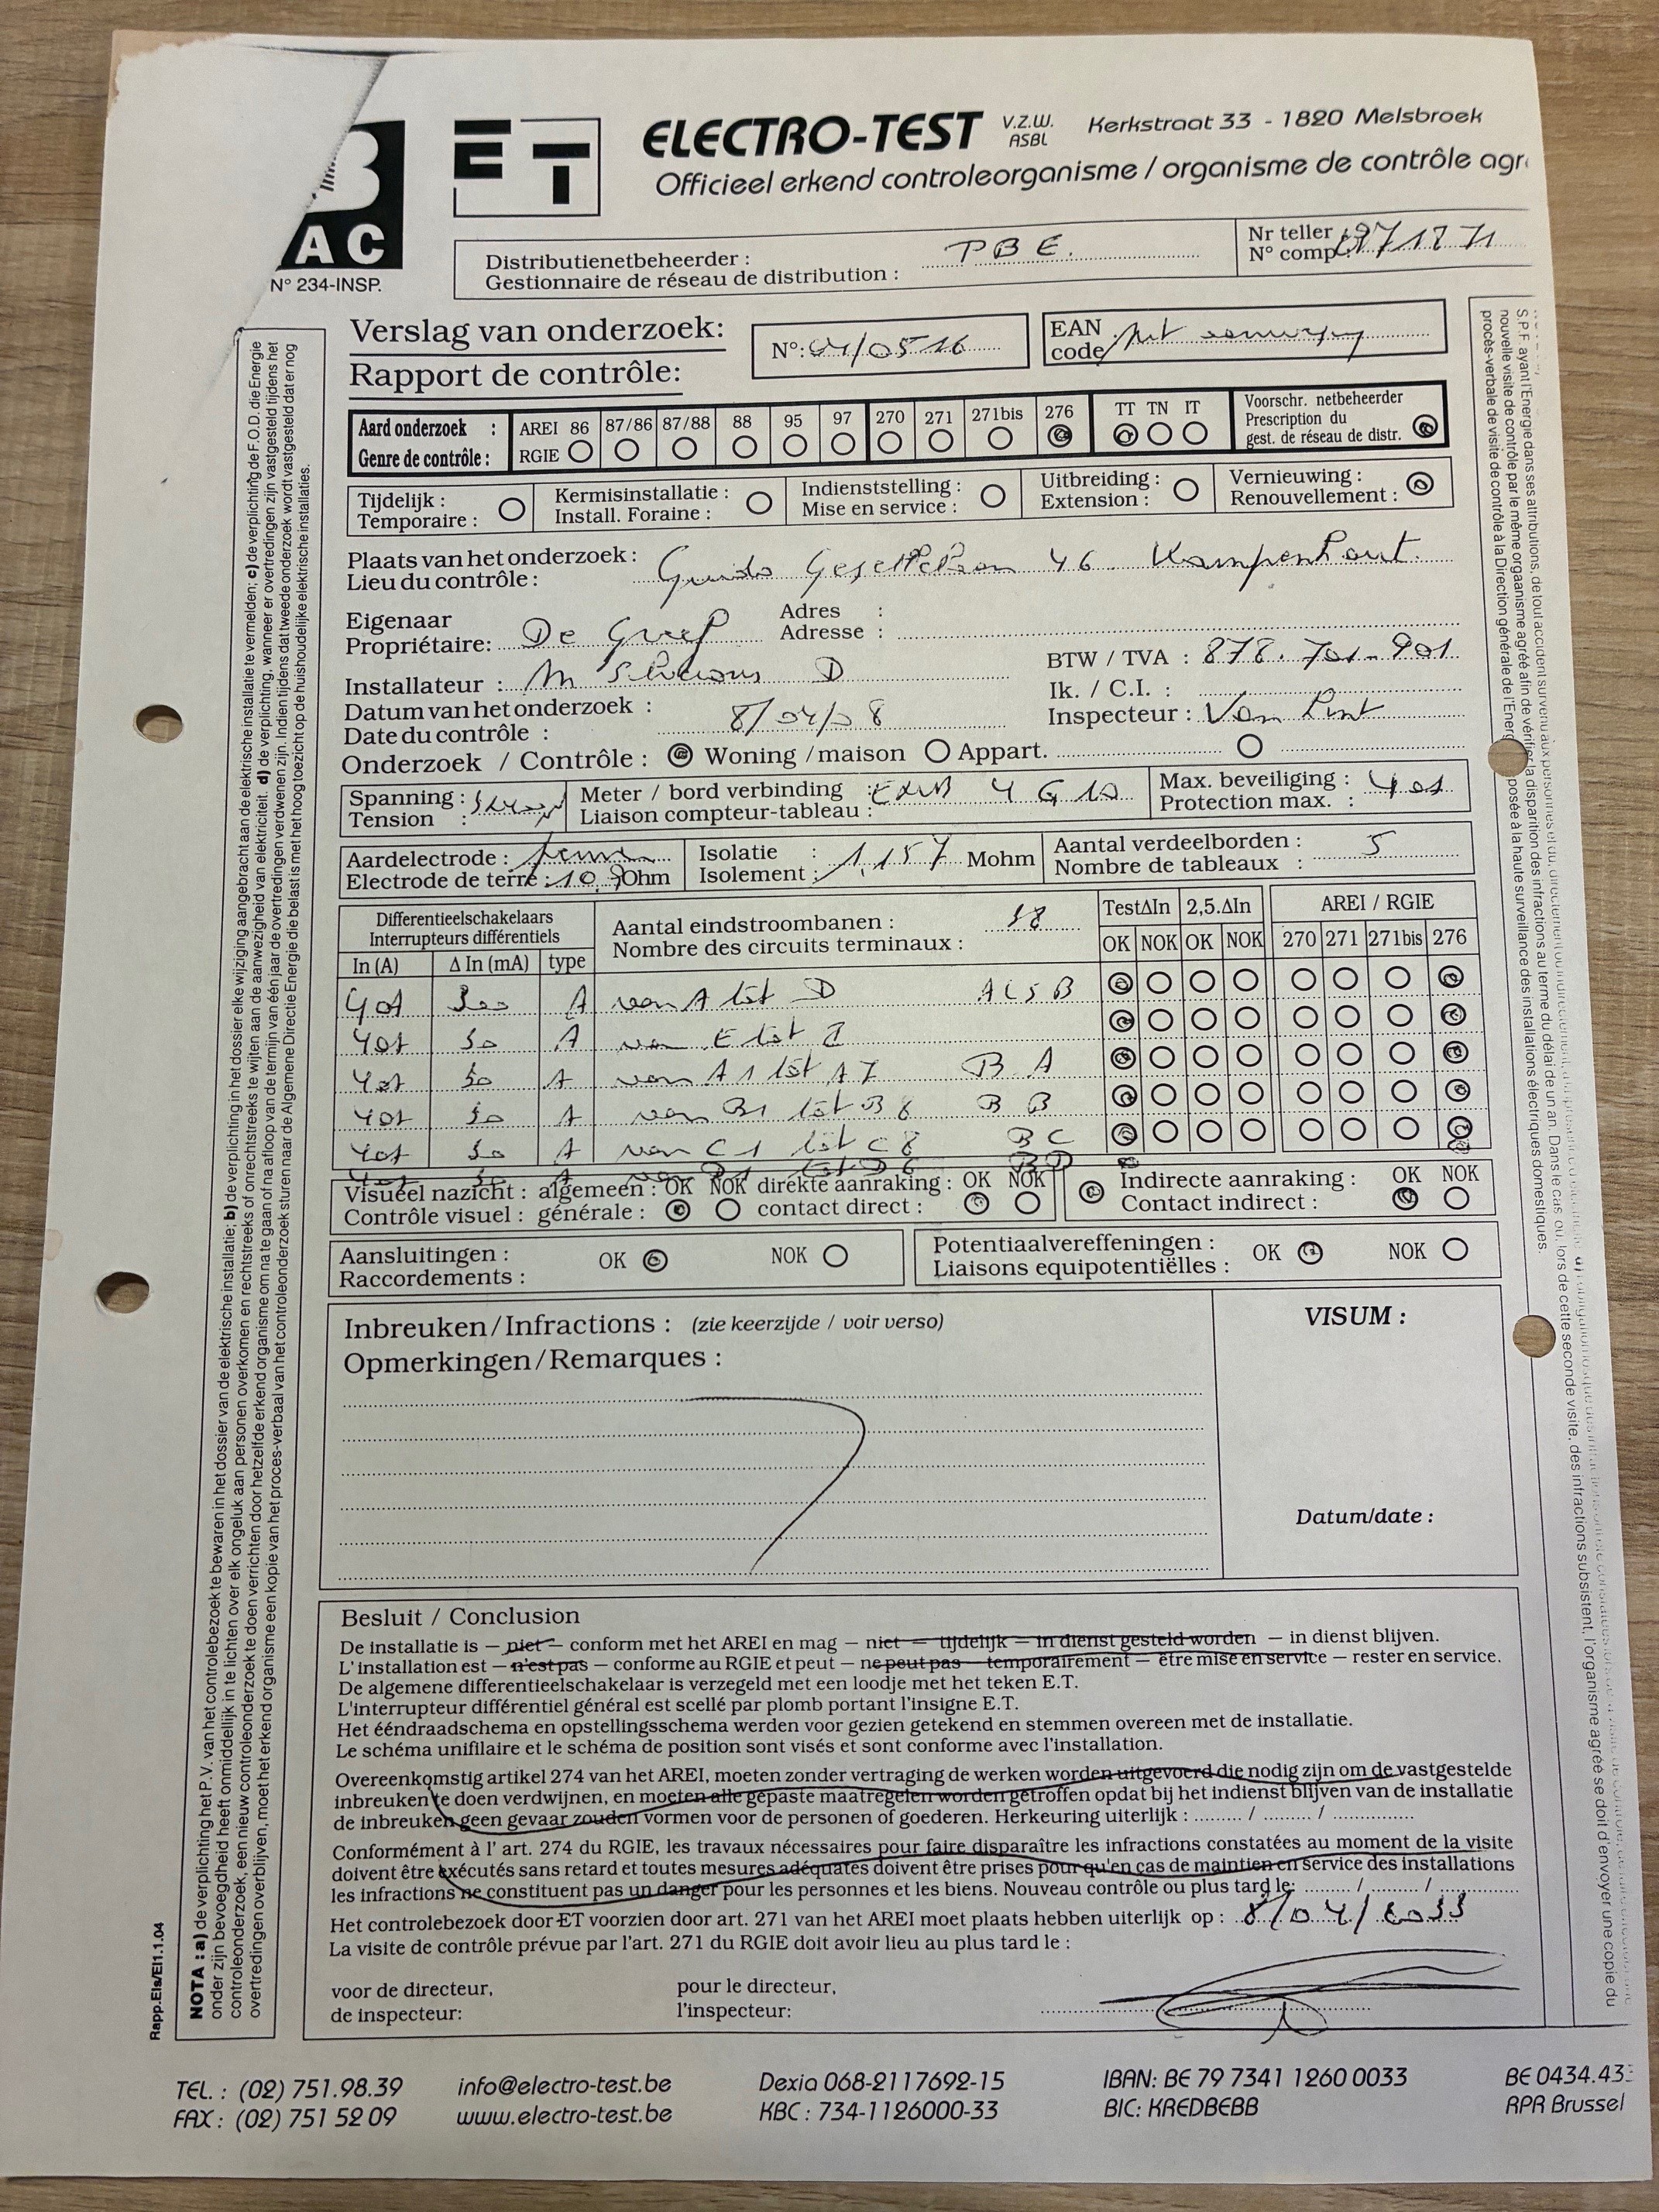 B
AC
N° 234-INSP.
ET
ELECTRO-TEST V.Z.W. ASBL Kerkstraat 33 - 1820 Melsbroek
Officieel erkend controleorganisme / organisme de contrôle agr
Distributienetbeheerder :
Gestionnaire de réseau de distribution : PBE.
Nr teller
N° comp
Verslag van onderzoek:
Rapport de contrôle:
N°: 04/0516
EAN
code
Aard onderzoek :
Genre de contrôle :
AREI 86 87/86 87/88 88 95 97 270 271 271bis 276 TT TN IT
RGIE
Voorschr. netbeheerder
Prescription du
gest. de réseau de distr.
Tijdelijk :
Temporaire :
Kermisinstallatie :
Install. Foraine :
Indienststelling :
Mise en service :
Uitbreiding :
Extension :
Vernieuwing :
Renouvellement :
Plaats van het onderzoek :
Lieu du contrôle : Guido Gezellelaan 46 Kampenhout
Eigenaar
Propriétaire: De Greef
Adres :
Adresse :
Installateur :
BTW / TVA : 878.701.901
Ik. / C.I. :
Datum van het onderzoek :
Date du contrôle : 8/04/08
Inspecteur : Van Lint
Onderzoek / Contrôle : Woning / maison Appart.
Spanning :
Tension :
Meter / bord verbinding :
Liaison compteur-tableau : EXVB 4G10
Max. beveiliging :
Protection max. :
Aardelectrode :
Electrode de terre : Ohm
Isolatie :
Isolement : 1,157 Mohm
Aantal verdeelborden :
Nombre de tableaux : 5
Differentieelschakelaars
Interrupteurs différentiels
Aantal eindstroombanen :
Nombre des circuits terminaux : 38
TestΔIn 2,5.ΔIn AREI / RGIE
OK NOK OK NOK 270 271 271bis 276
In (A) Δ In (mA) type
40A 300 A van A tot D
40A 30 A van E tot
40A 30 A van A1 tot A7 B A
40A 30 A van B1 tot B8 B B
40A 30 A van C1 tot C8 B C
A tot D6 BD
Visueel nazicht : algemeen : OK NOK direkte aanraking : OK NOK
Contrôle visuel : générale : contact direct :
Indirecte aanraking : OK NOK
Contact indirect :
Aansluitingen : OK NOK
Raccordements :
Potentiaalvereffeningen : OK NOK
Liaisons equipotentiëlles :
Inbreuken/Infractions : (zie keerzijde / voir verso)
Opmerkingen/Remarques :
VISUM :
Datum/date :
Besluit / Conclusion
De installatie is – niet – conform met het AREI en mag – niet – tijdelijk – in dienst gesteld worden – in dienst blijven.
L'installation est – n'est pas – conforme au RGIE et peut – ne peut pas – temporairement – être mise en service – rester en service.
De algemene differentieelschakelaar is verzegeld met een loodje met het teken E.T.
L'interrupteur différentiel général est scellé par plomb portant l'insigne E.T.
Het ééndraadschema en opstellingsschema werden voor gezien getekend en stemmen overeen met de installatie.
Le schéma unifilaire et le schéma de position sont visés et sont conforme avec l'installation.
Overeenkomstig artikel 274 van het AREI, moeten zonder vertraging de werken worden uitgevoerd die nodig zijn om de vastgestelde
inbreuken te doen verdwijnen, en moeten alle gepaste maatregelen worden getroffen opdat bij het indienst blijven van de installatie
de inbreuken geen gevaar zouden vormen voor de personen of goederen. Herkeuring uiterlijk : ........ / ........ / ..............
Conformément à l' art. 274 du RGIE, les travaux nécessaires pour faire disparaître les infractions constatées au moment de la visite
doivent être exécutés sans retard et toutes mesures adéquates doivent être prises pour qu'en cas de maintien en service des installations
les infractions ne constituent pas un danger pour les personnes et les biens. Nouveau contrôle ou plus tard le: ........ / ........ / ..............
Het controlebezoek door ET voorzien door art. 271 van het AREI moet plaats hebben uiterlijk op : 8/04/2033
La visite de contrôle prévue par l'art. 271 du RGIE doit avoir lieu au plus tard le :
voor de directeur,
de inspecteur:
pour le directeur,
l'inspecteur:
TEL. : (02) 751.98.39 info@electro-test.be Dexia 068-2117692-15 IBAN: BE 79 7341 1260 0033 BE 0434.43
FAX : (02) 751 52 09 www.electro-test.be KBC : 734-1126000-33 BIC: KREDBEBB RPR Brussel
Rapp.Els/El1.1.04
NOTA : a) de verplichting het P.V. van het controlebezoek te bewaren in het dossier van de elektrische installatie; b) de verplichting in het dossier elke wijziging aangebracht aan de elektrische installatie te vermelden; c) de verplichting de F.O.D. die Energie
onder zijn bevoegdheid heeft onmiddellijk in te lichten over elk ongeluk aan personen overkomen en rechtstreeks of onrechtstreeks te wijten aan de aanwezigheid van elektriciteit. d) de verplichting, wanneer er overtredingen zijn vastgesteld tijdens het
controleonderzoek, een nieuw controleonderzoek te doen verrichten door hetzelfde erkend organisme om na te gaan of na afloop van de termijn van één jaar de overtredingen verdwenen zijn. Indien tijdens dat tweede onderzoek wordt vastgesteld dat er nog
overtredingen overblijven, moet het erkend organisme een kopie van het proces-verbaal van het controleonderzoek sturen naar de Algemene Directie Energie die belast is met het hoog toezicht op de huishoudelijke elektrische installaties.
S.P.F. ayant l'Energie dans ses attributions, de tout accident survenu aux personnes et du, directement ou indirectement, à la présence
nouvelle visite de contrôle par le même organisme agréé afin de vérifier la disparition des infractions au terme du délai de un an. Dans le cas où, lors de cette seconde visite, des infractions subsistent, l'organisme agréé se doit d'envoyer une copie du
procès-verbal de visite de contrôle à la Direction générale de l'Energ posée à la haute surveillance des installations électriques domestiques.